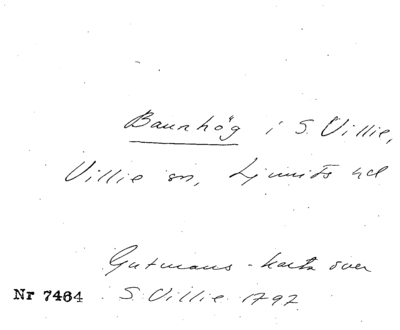 Baunhög i S. Villie,
Villie sn, Ljunits hd
Gutmans - karta över
Nr 7464 S. Villie 1797